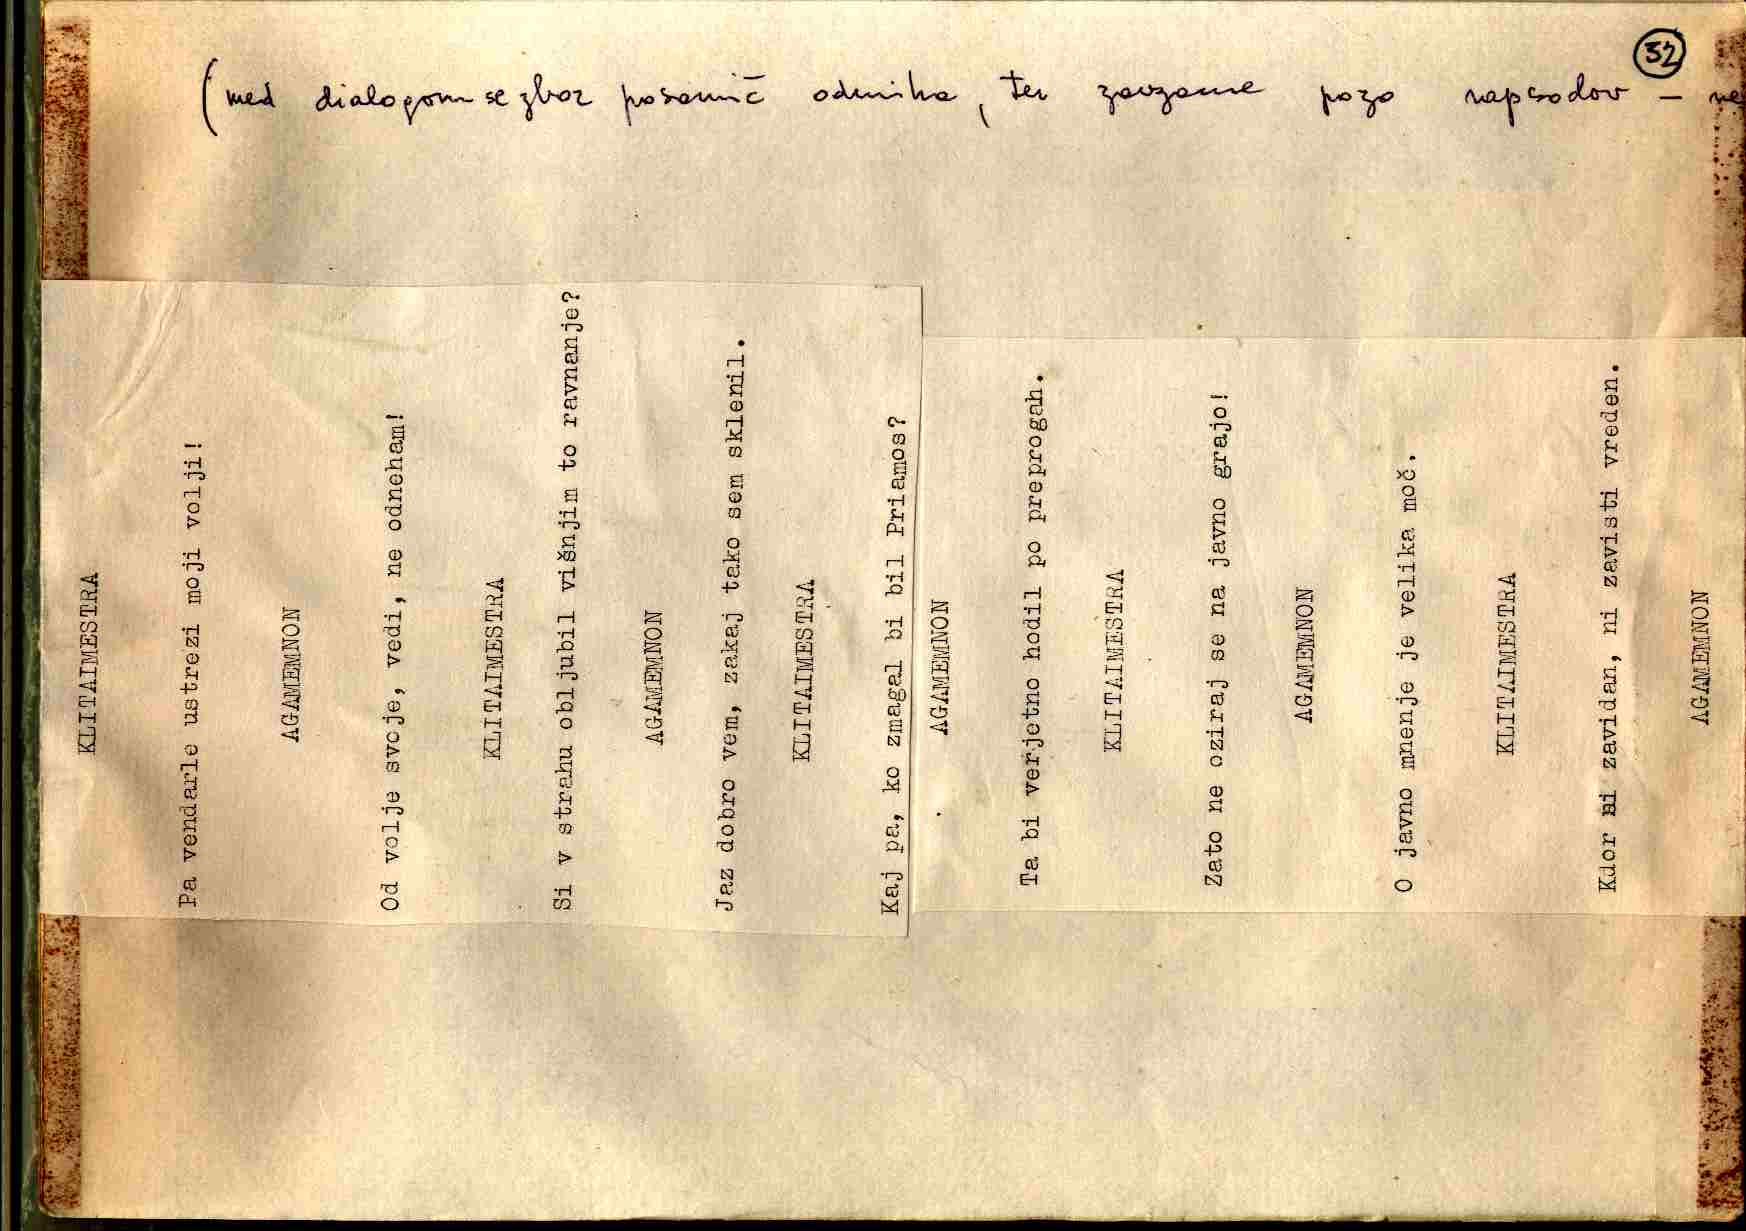 32
(med dialogom se zbor posamič odmika, ter zavzame pozo rapsodov –
KLITAIMESTRA
Pa vendarle ustrezi moji volji!
AGAMEMNON
Od volje svoje, vedi, ne odneham!
KLITAIMESTRA
Si v strahu obljubil višnjim to ravnanje?
AGAMEMNON
Jaz dobro vem, zakaj tako sem sklenil.
KLITAIMESTRA
Kaj pa, ko zmagal bi bil Priamos?
AGAMEMNON
Ta bi verjetno hodil po preprogah.
KLITAIMESTRA
Zato ne oziraj se na javno grajo!
AGAMEMNON
O javno mnenje je velika moč.
KLITAIMESTRA
Kdor ni zavidan, ni zavisti vreden.
AGAMEMNON